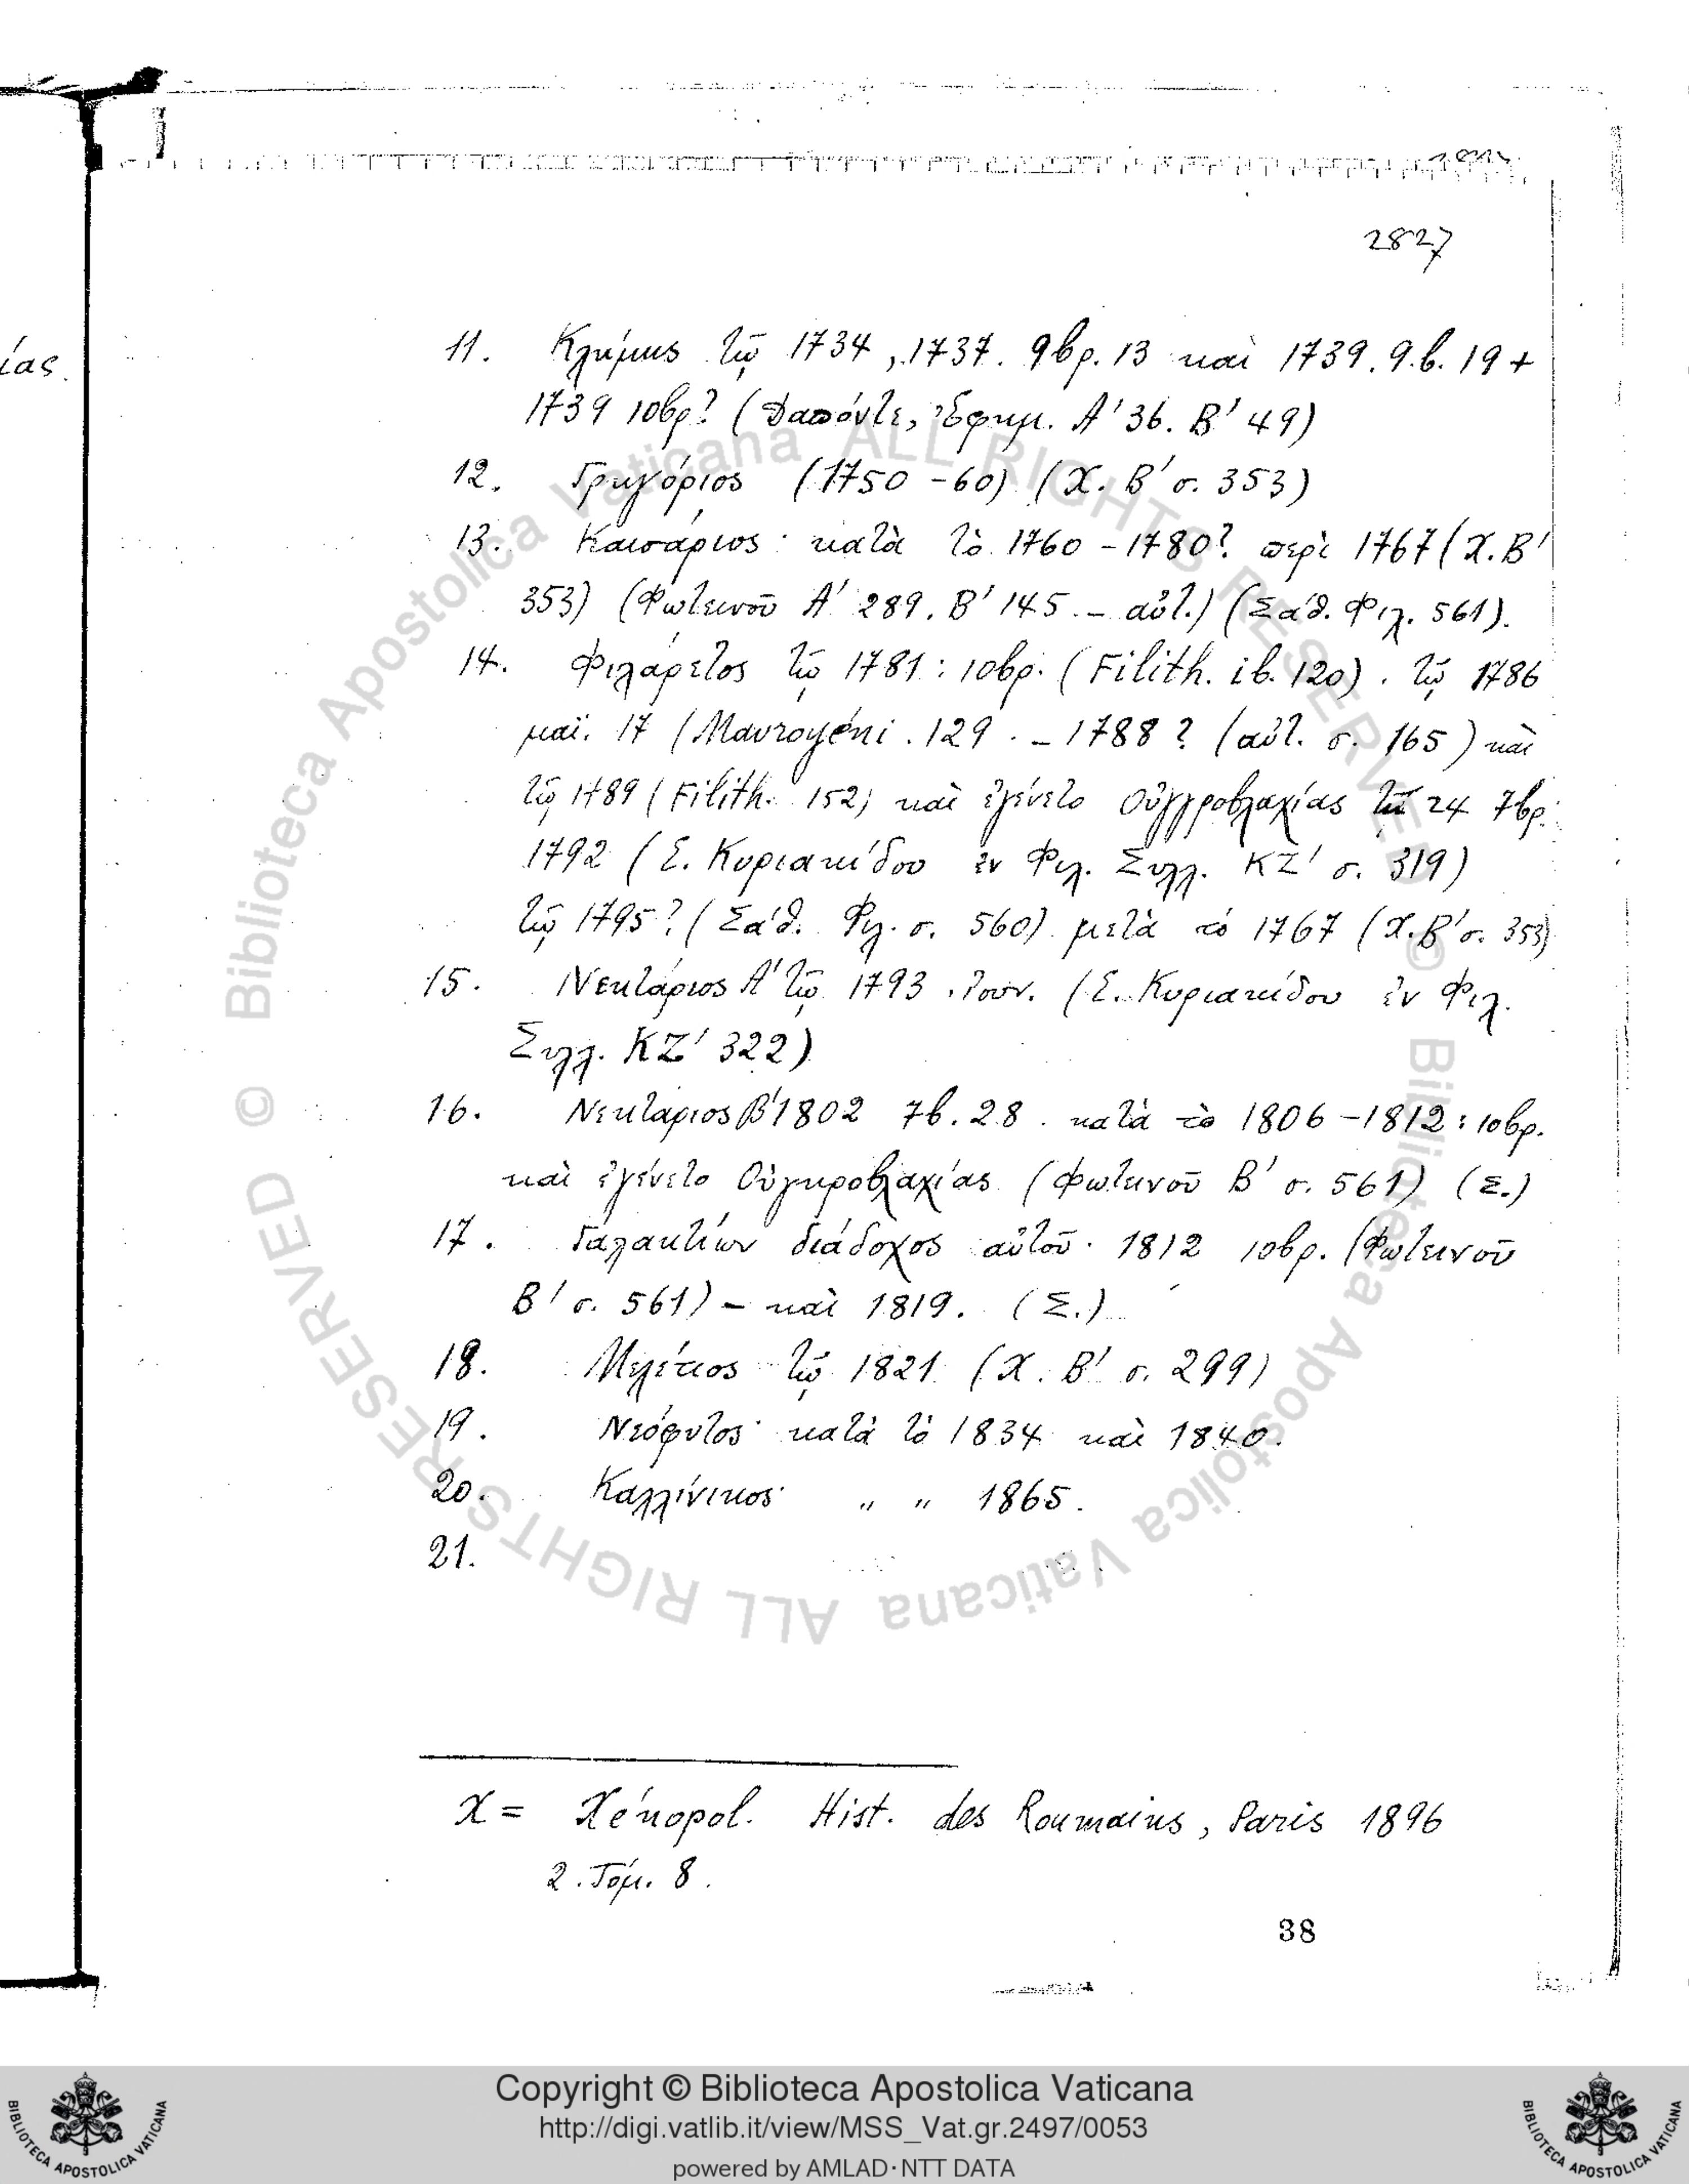 2827
ίας
11. Κλήμης τῷ 1734, 1737. 9βρ. 13 καὶ 1739. 9.β. 19 +
1739 10βρ? (Δαπόντε, Ἐφημ. Α' 36. Β' 49)
12. Γρηγόριος (1750-60) (Χ. Β' σ. 353)
13. Καισάριος· κατὰ τὸ 1760-1780? περὶ 1767 (Χ. Β'
353) (Φωτεινοῦ Α' 289. Β' 145. – αὐτ.) (Σάθ. Φιλ. 561).
14. Φιλάρετος τῷ 1781: 10βρ. (Filith. ib. 120). τῷ 1786
μαΐ. 17 (Mavroyéni. 129. – 1788? (αὐτ. σ. 165) καὶ
τῷ 1789 (Filith. 152) καὶ ἐγένετο Οὐγγροβλαχίας τῇ 24 7βρ.
1792 (Ε. Κυριακίδου ἐν Φιλ. Συλλ. ΚΖ' σ. 319)
τῷ 1795? (Σάθ. Φιλ. σ. 560) μετὰ τὸ 1767 (Χ. Β' σ. 353)
15. Νεκτάριος Α' τῷ 1793. Ἰουν. (Ε. Κυριακίδου ἐν Φιλ.
Συλλ. ΚΖ' 322)
16. Νεκτάριος Β' 1802 7β. 28. κατὰ τὸ 1806-1812: 10βρ.
καὶ ἐγένετο Οὐγκροβλαχίας (Φωτεινοῦ Β' σ. 561) (Σ.)
17. Γαλακτίων διάδοχος αὐτοῦ· 1812 10βρ. (Φωτεινοῦ
Β' σ. 561) – καὶ 1819. (Σ.)
18. Μελέτιος τῷ 1821 (Χ. Β' σ. 299)
19. Νεόφυτος· κατὰ τὸ 1834 καὶ 1840.
20. Καλλίνικος· „ „ 1865.
21.
X = Xénopol. Hist. des Roumains, Paris 1896
2. Τόμ. 8.
38
© Biblioteca Apostolica Vaticana ALL RIGHTS RESERVED
© Biblioteca Apostolica Vaticana ALL RIGHTS RESERVED
Copyright © Biblioteca Apostolica Vaticana
http://digi.vatlib.it/view/MSS_Vat.gr.2497/0053
powered by AMLAD·NTT DATA
BIBLIOTECA APOSTOLICA VATICANA
BIBLIOTECA APOSTOLICA VATICANA